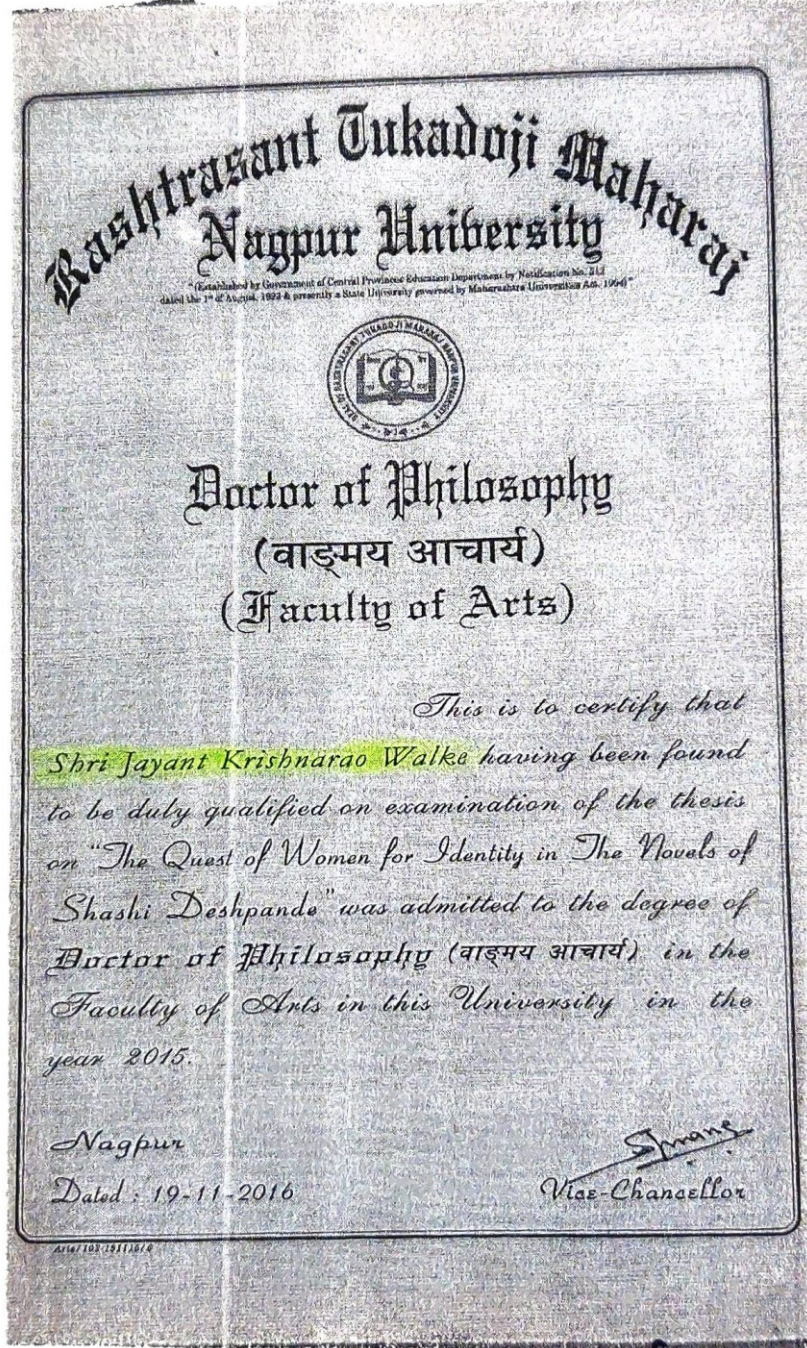 Rashtrasant Tukadoji Maharaj
Nagpur University
"(Established by Government of Central Provinces Education Department by Notification No. 513
dated the 1st of August, 1923 & presently a State University governed by Maharashtra Universities Act, 1994)"
SEAL OF RASHTRASANT TUKADOJI MAHARAJ NAGPUR UNIVERSITY
Doctor of Philosophy
(वाङ्‌मय आचार्य)
(Faculty of Arts)
This is to certify that
Shri Jayant Krishnarao Walke having been found
to be duly qualified on examination of the thesis
on "The Quest of Women for Identity in The Novels of
Shashi Deshpande" was admitted to the degree of
Doctor of Philosophy (वाङ्‌मय आचार्य) in the
Faculty of Arts in this University in the
year 2015.
Nagpur
Dated : 19-11-2016
Vice-Chancellor